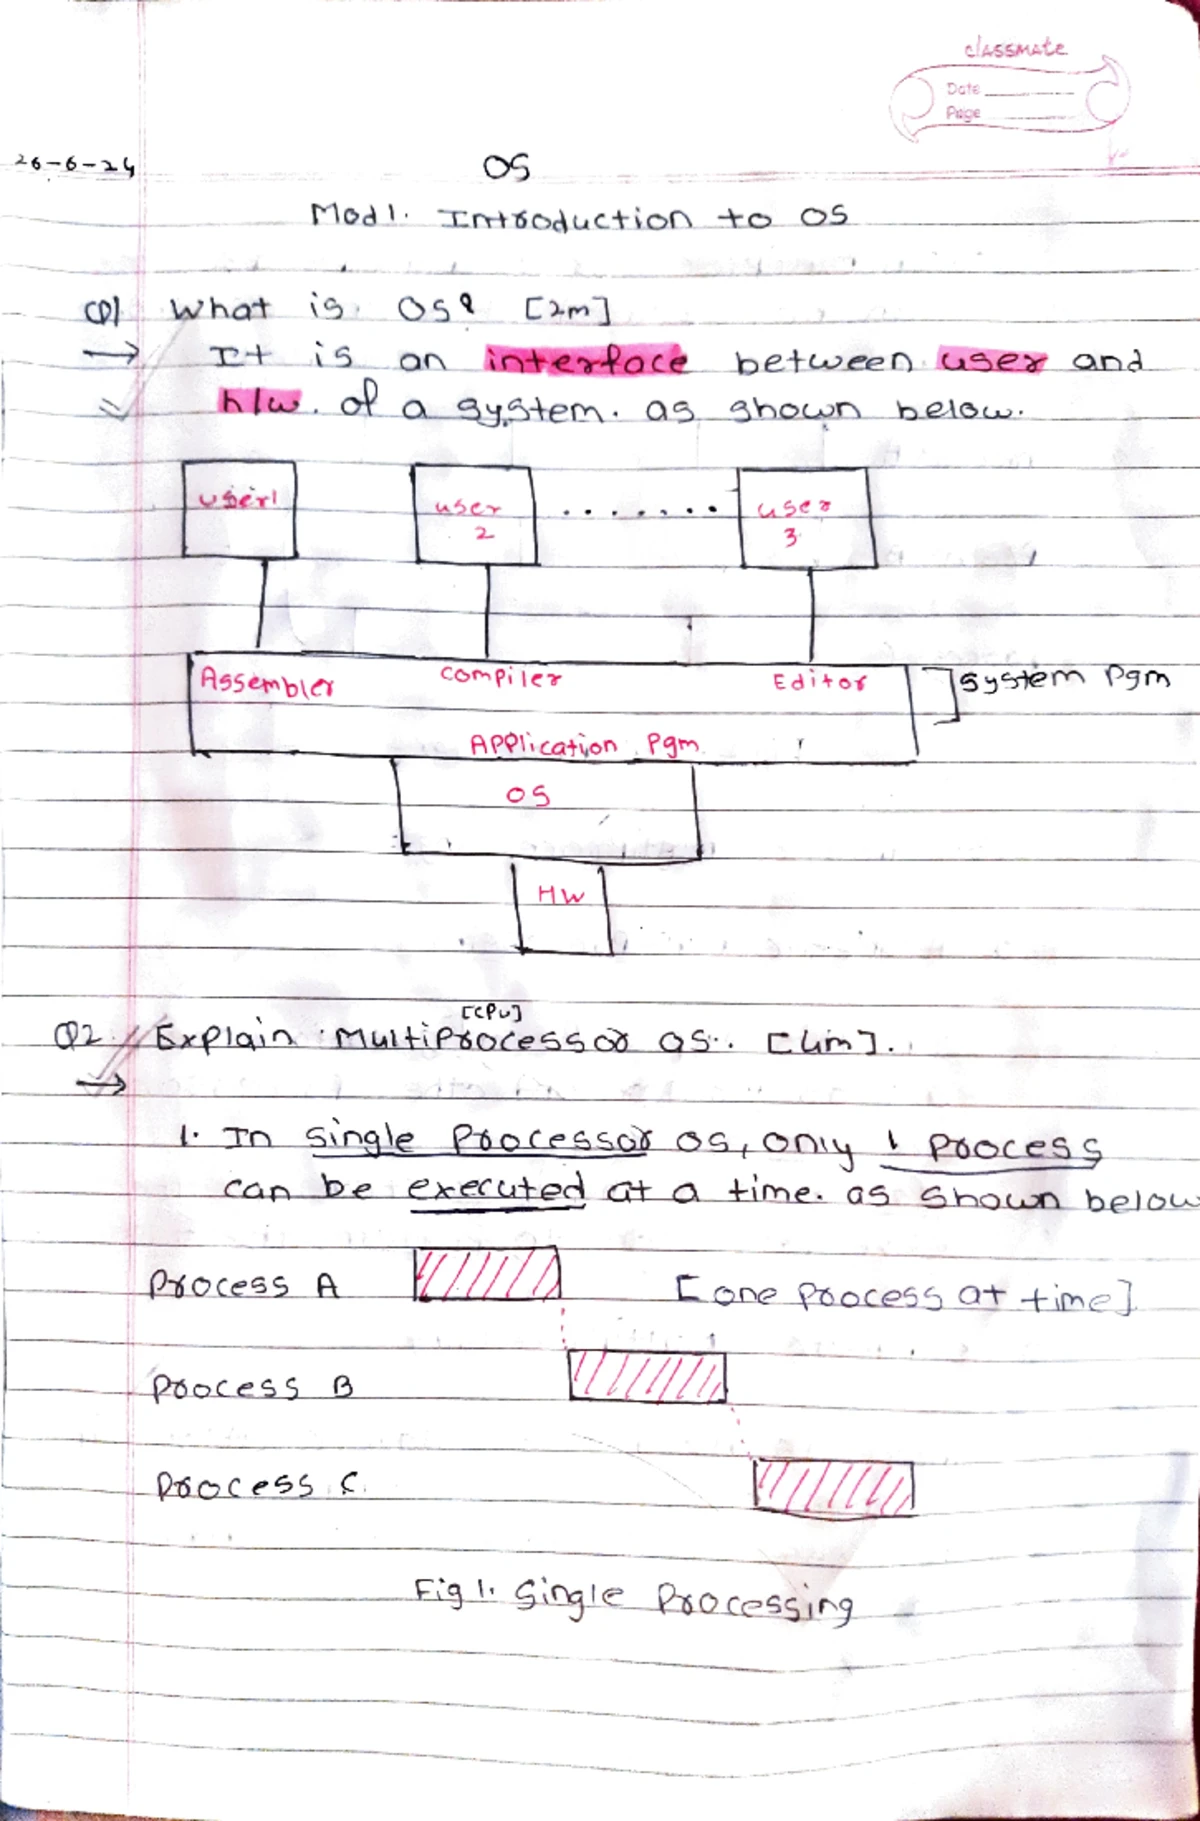 classmate
Date
Page
26-6-24
OS
Mod 1. Introduction to OS
Q1 What is OS? [2m]
→ It is an interface between user and
h/w. of a system. as shown below.
user1 user 2 ....... user 3
Assembler compiler Editor ] system Pgm
Application Pgm
OS
HW
[CPU]
Q2. Explain Multiprocessor os. [4m].
→
1. In single Processor os, only 1 process
can be executed at a time. as shown below
Process A [one process at time]
Process B
Process C.
Fig 1. Single Processing